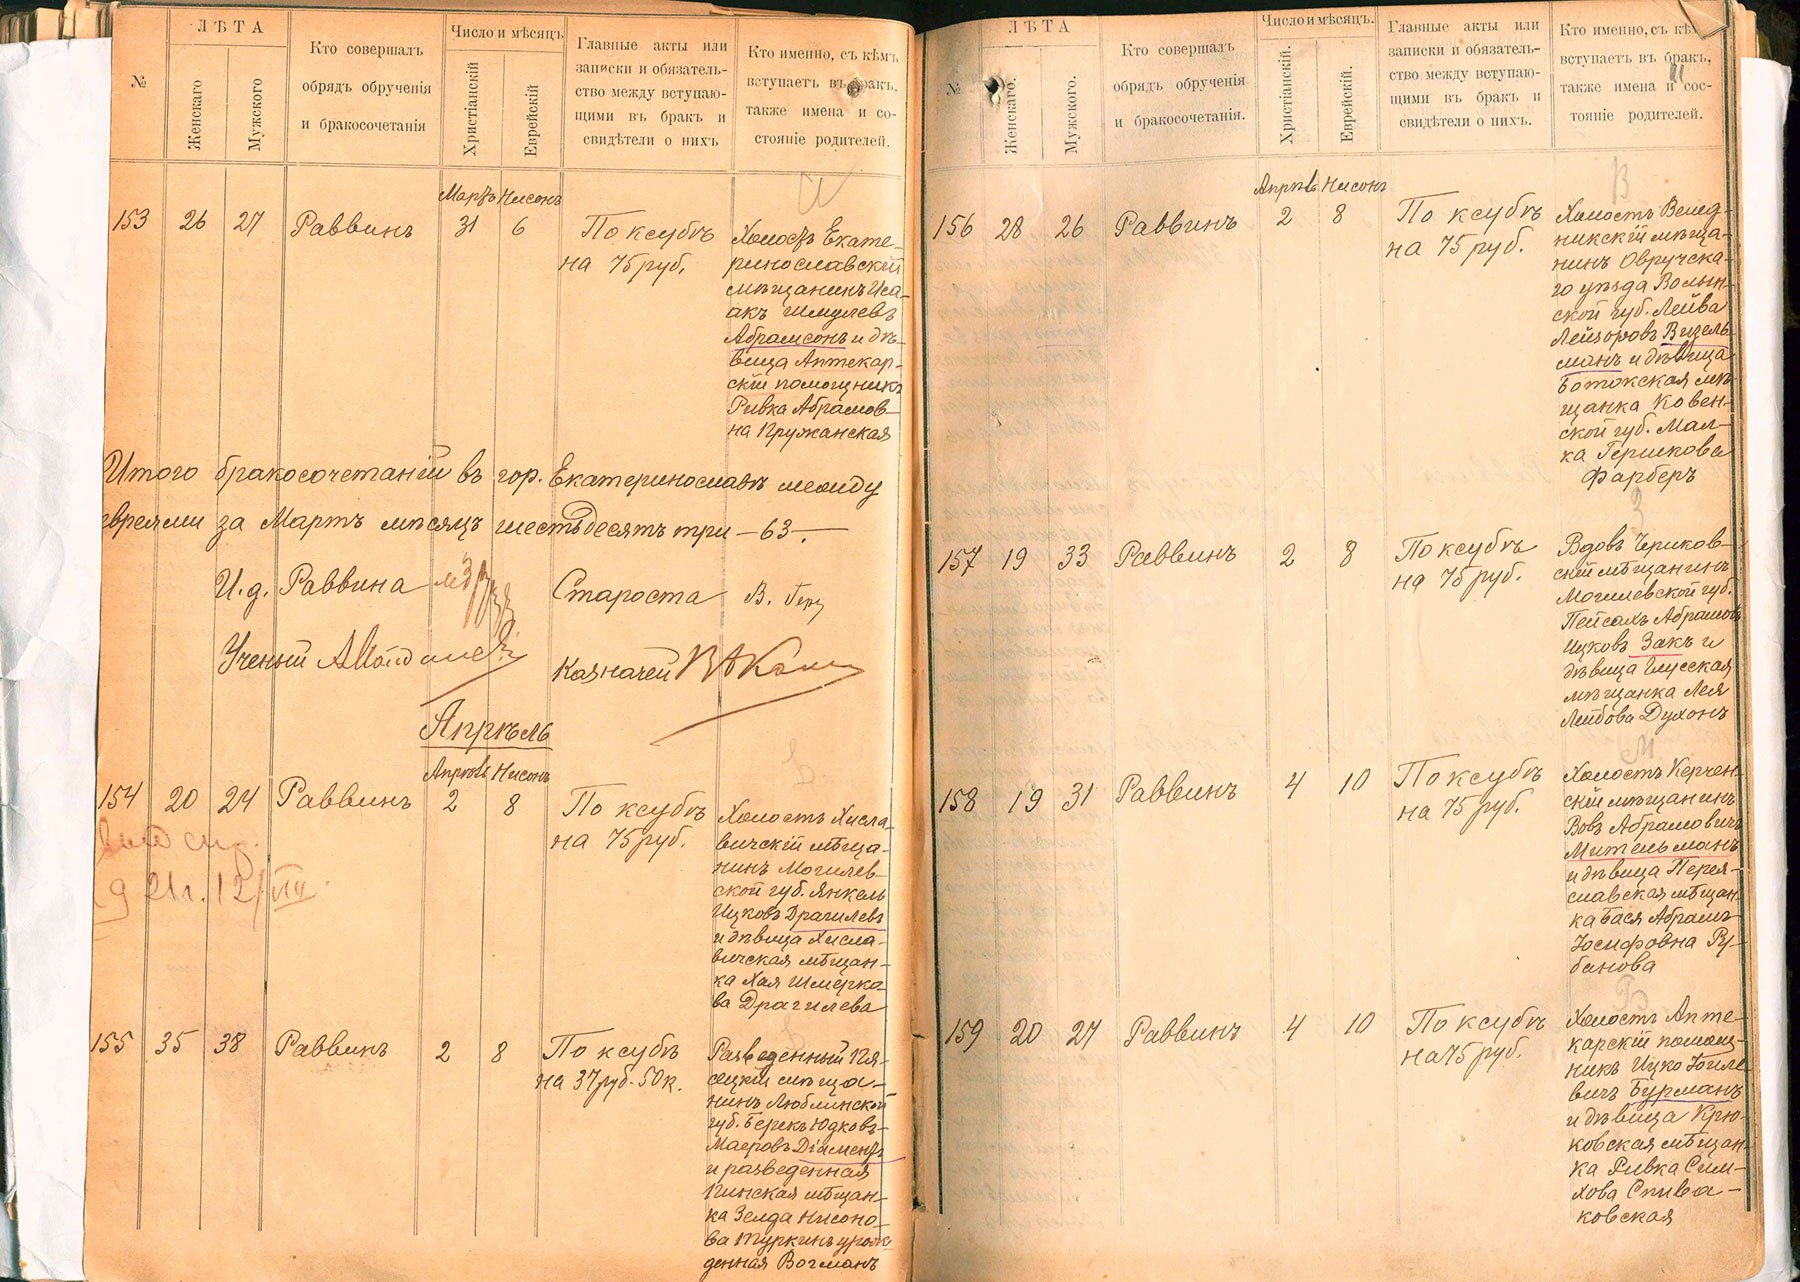 №
ЛѢТА
Женскаго
Мужского
Кто совершалъ
обрядъ обрученія
и бракосочетанія
Число и мѣсяцъ
Христіанскій
Еврейскій
Главные акты или
записки и обязатель-
ство между вступаю-
щими въ бракъ и
свидѣтели о нихъ
Кто именно, съ кѣмъ
вступаетъ въ бракъ,
также имена и со-
стояніе родителей.
Мартъ Нисонъ
153 26 27 Раввинъ 31 6
По ксубѣ
на 75 руб.
Холостъ Екате-
ринославскій
мѣщанинъ Иса-
акъ Шмулевъ
Абрамсонъ и дѣ-
вица Аптекар-
скій помощникъ
Ривка Абрамов-
на Пружанская
Итого бракосочетаній въ гор. Екатеринославѣ между
евреями за Мартъ мѣсяцъ шестьдесятъ три – 63. –
И. д. Раввина
Староста В.
Ученый
Казначей
Апрѣль
Апрѣль Нисонъ
154 20 24 Раввинъ 2 8
По ксубѣ
на 75 руб.
Холостъ Хисла-
вичскій мѣща-
нинъ Могилев-
ской губ. Янкель
Ицковъ Драгилевъ
и дѣвица Хисла-
вичская мѣщан-
ка Хая Шмерко-
ва Драгилева
21 г. 12/VII
155 35 38 Раввинъ 2 8
По ксубѣ
на 37 руб. 50 к.
Разведенный Пя-
сецкій мѣща-
нинъ Люблинской
губ. Берекъ Юдковъ-
Маеровъ Діаментъ
и разведенная
Пинская мѣщан-
ка Зелда Нисоно-
ва Туркинъ урож-
денная Вогманъ
№
ЛѢТА
Женскаго.
Мужского.
Кто совершалъ
обрядъ обрученія
и бракосочетанія.
Число и мѣсяцъ.
Христіанскій.
Еврейскій.
Главные акты или
записки и обязатель-
ство между вступаю-
щими въ бракъ и
свидѣтели о нихъ.
Кто именно, съ кѣ
вступаетъ въ бракъ,
также имена и сос-
тояніе родителей.
Апрѣль Нисонъ
В
156 28 26 Раввинъ 2 8
По ксубѣ
на 75 руб.
Холостъ Велед-
никскій мѣща-
нинъ Овручска-
го уѣзда Волын-
ской губ. Лейба
Лейзоровъ Визель-
манъ и дѣвица
Ботокская мѣ-
щанка Ковен-
ской губ. Мал-
ка Гершкова
Фарберъ
З
157 19 33 Раввинъ 2 8
По ксубѣ
на 75 руб.
Вдовъ Чериков-
скій мѣщанинъ
Могилевской губ.
Пейсахъ Абрамовъ
Ицковъ Закъ и
дѣвица Глусская
мѣщанка Лея
Лейбова Духонъ
М
158 19 31 Раввинъ 4 10
По ксубѣ
на 75 руб.
Холостъ Керчен-
скій мѣщанинъ
Вовъ Абрамовичъ
Мительманъ
и дѣвица Перея-
славская мѣщан-
ка Бася Абрамъ-
Іосифовна Ру-
банова
Б
159 20 27 Раввинъ 4 10
По ксубѣ
на 75 руб.
Холостъ Апте-
карскій помощ-
никъ Ицко Іоиле-
вичъ Бурманъ
и дѣвица Крю-
ковская мѣщан-
ка Ривка Сим-
хова Спива-
ковская